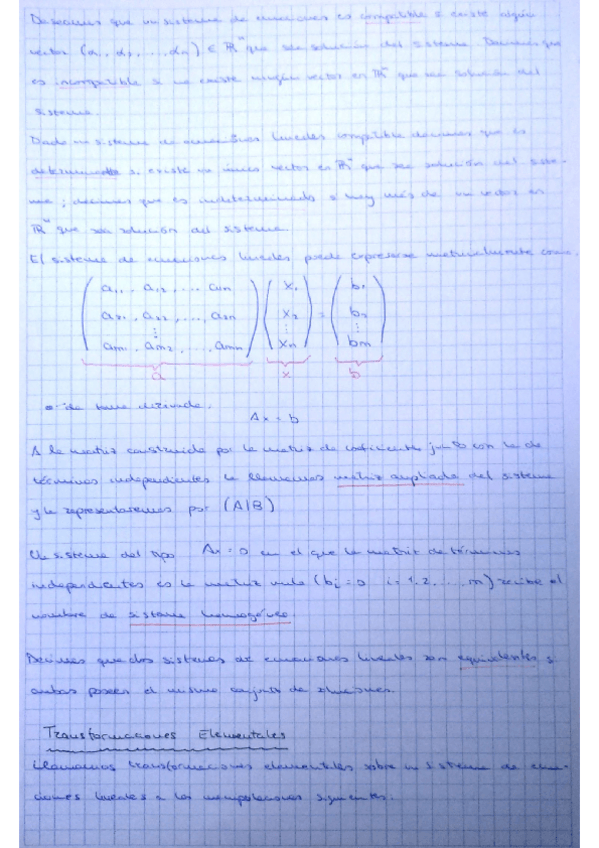 Decimos que un sistema de ecuaciones es compatible si existe algún
vector (α₁, α₂, ..., αn) ∈ ℝⁿ que sea solución del sistema. Decimos que
es incompatible si no existe ningún vector en ℝⁿ que sea solución del
sistema.
Dado un sistema de ecuaciones lineales compatible decimos que es
determinado si existe un único vector en ℝⁿ que sea solución del siste-
ma; decimos que es indeterminado si hay más de un vector en
ℝⁿ que sea solución del sistema.
El sistema de ecuaciones lineales puede expresarse matricialmente como:
( a₁₁, a₁₂, ... a₁n ) ( x₁ ) ( b₁ )
( a₂₁, a₂₂, ..., a₂n ) ( x₂ ) = ( b₂ )
⋮ ⋮ ⋮
( am₁, am₂, ..., amn ) ( xn ) ( bm )
a x b
de forma abreviada.
Ax = b
A la matriz construida por la matriz de coeficientes junto con la de
términos independientes la llamamos matriz ampliada del sistema
y la representaremos por (A|B)
Un sistema del tipo Ax = 0 en el que la matriz de términos
independientes es la matriz nula (bᵢ = 0 i = 1, 2, ..., m) recibe el
nombre de sistema homogéneo.
Decimos que dos sistemas de ecuaciones lineales son equivalentes si
ambos poseen el mismo conjunto de soluciones.
Transformaciones Elementales
Llamamos transformaciones elementales sobre un sistema de ecua-
ciones lineales a las manipulaciones siguientes.